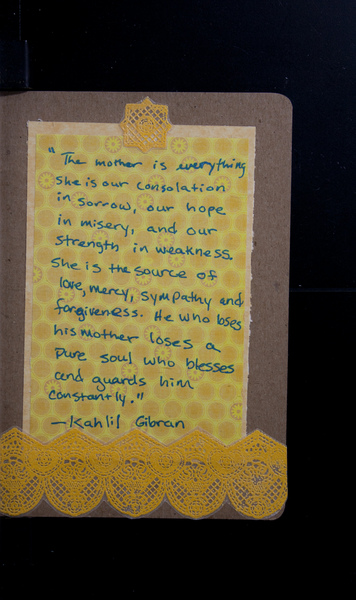 "The mother is everything
she is our consolation
in sorrow, our hope
in misery, and our
strength in weakness.
She is the source of
love, mercy, sympathy and
forgiveness. He who loses
his mother loses a
pure soul who blesses
and guards him
constantly."
—Kahlil Gibran